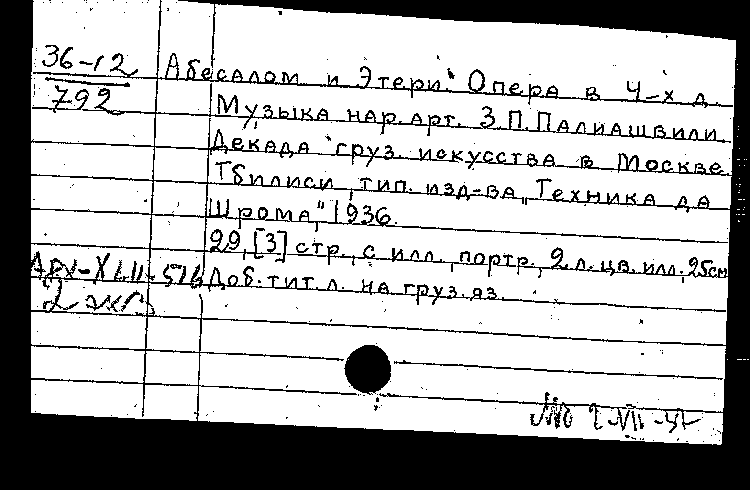 36-12
792
Абесалом и Этери. Опера в 4-х д.
Музыка нар. арт. З.П. Палиашвили.
Декада груз. искусства в Москве.
Тбилиси, тип. изд-ва „Техника да
Шрома", 1936.
29, [3] стр., с илл., портр., 2 л. цв. илл., 25см
Доб. тит. л. на груз. яз.
2 экз